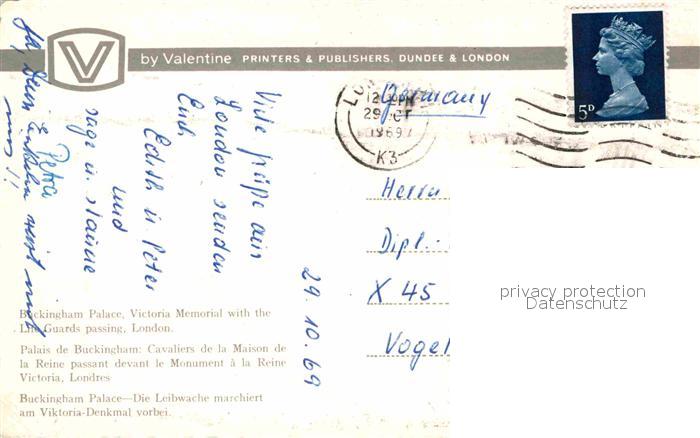 V
by Valentine PRINTERS & PUBLISHERS, DUNDEE & LONDON
5D
LO
12 PM
29 OCT
1969
K3
Germany
Viele Grüße aus
London senden
Euch
Edith u. Peter
und
sage u. staune
Petra
Ja, Deine
29. 10. 69
Herrn
Dipl.-
X 45
Vogel
privacy protection
Datenschutz
Buckingham Palace, Victoria Memorial with the
Life Guards passing, London.
Palais de Buckingham: Cavaliers de la Maison de
la Reine passant devant le Monument à la Reine
Victoria, Londres
Buckingham Palace—Die Leibwache marchiert
am Viktoria-Denkmal vorbei.